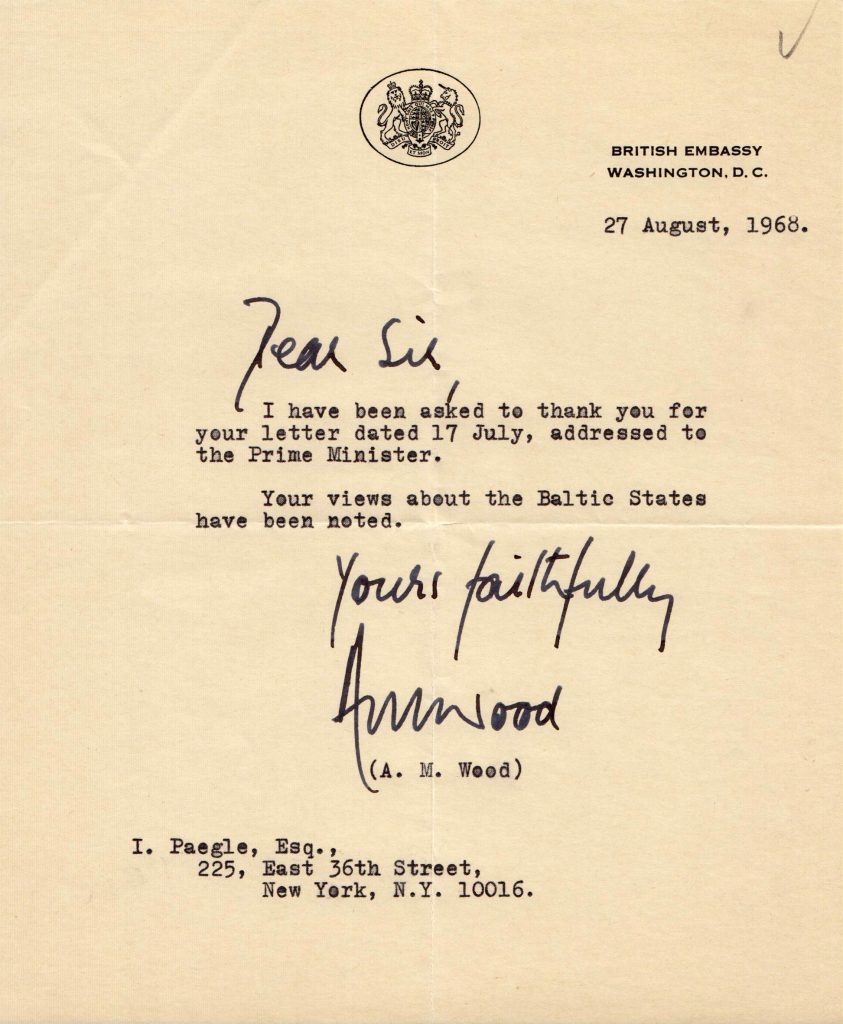 BRITISH EMBASSY
WASHINGTON, D. C.
27 August, 1968.
Dear Sir,
I have been asked to thank you for
your letter dated 17 July, addressed to
the Prime Minister.
Your views about the Baltic States
have been noted.
Yours faithfully
AMWood
(A. M. Wood)
I. Paegle, Esq.,
225, East 36th Street,
New York, N.Y. 10016.